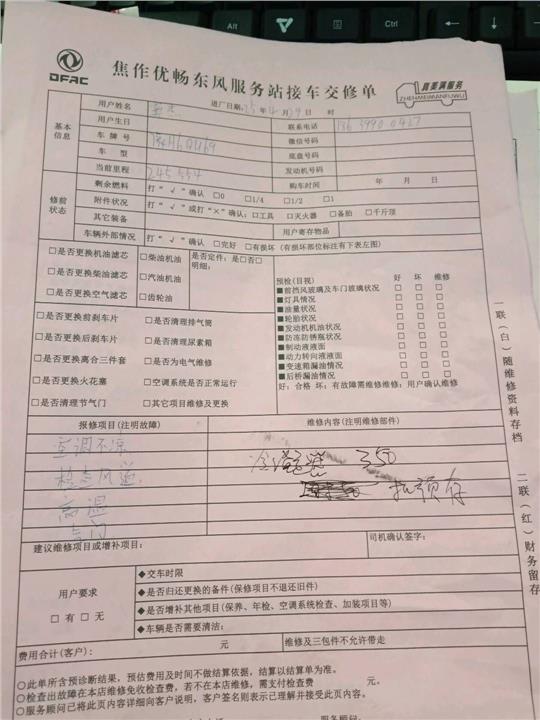 Alt
Ctrl
DFAC
焦作优畅东风服务站接车交修单
真美满服务
ZHENMEIMANFUWU
进厂日期: 25年 月29日 时
基本信息
用户姓名
用户生日
联系电话
车牌号
微信号码
车型
底盘号码
当前里程 245554
发动机号码
修前状态
剩余燃料 打“√”确认 □0 □1/4 □1/2 □1
购车时间 年 月 日
附件状况 打“√”或打“×”确认:□工具 □灭火器 □备胎 □千斤顶
其它装备
用户寄存物品
车辆外部情况 打“√”确认 □完好 □有损坏(有损坏部位标注有下表左图)
□是否更换机油滤芯 □柴油机油 是否定件:是□否□
明细:
□是否更换柴油滤芯 □汽油机油
□是否更换空气滤芯 □齿轮油
预检(目视) 好 坏 维修
■前挡风玻璃及车门玻璃状况 □ □ □
■灯具情况 □ □ □
■油量状况 □ □ □
■轮胎状况 □ □ □
■发动机机油状况 □ □ □
■防冻防锈瓶状况 □ □ □
■制动液液面 □ □ □
■动力转向液液面 □ □ □
■变速箱漏油情况 □ □ □
■后桥漏油情况 □ □ □
好:合格 坏:有故障需维修维修:用户确认维修
□是否更换前刹车片 □是否清理排气筒
□是否更换后刹车片 □是否清理尿素箱
□是否更换离合三件套 □是否为电气维修
□是否更换火花塞 □空调系统是否正常运行
□是否清理节气门 □其它项目维修及更换
报修项目(注明故障)
维修内容(注明维修部件)
空调不凉
检查风道
高温
350
扣预存
建议维修项目或增补项目:
司机确认签字:
用户要求
□有 □无
◆交车时限
◆是否归还更换的备件(保修项目不退还旧件)
◆是否增补其他项目(保养、年检、空调系统检查、加装项目等)
◆车辆是否需要清洁:
费用合计(客户): 元
维修及三包件不允许带走
○此单所含预诊断结果,预估费用及时间不做结算依据,结算以结算单为准。
○检查出故障在本店维修免收检查费,若不在本店维修,需支付检查费 元。
○服务顾问已将此页内容详细向客户说明,客户签名则表示已理解并接受此页内容。
服务顾问:
一联(白)随维修资料存档
二联(红)财务留存